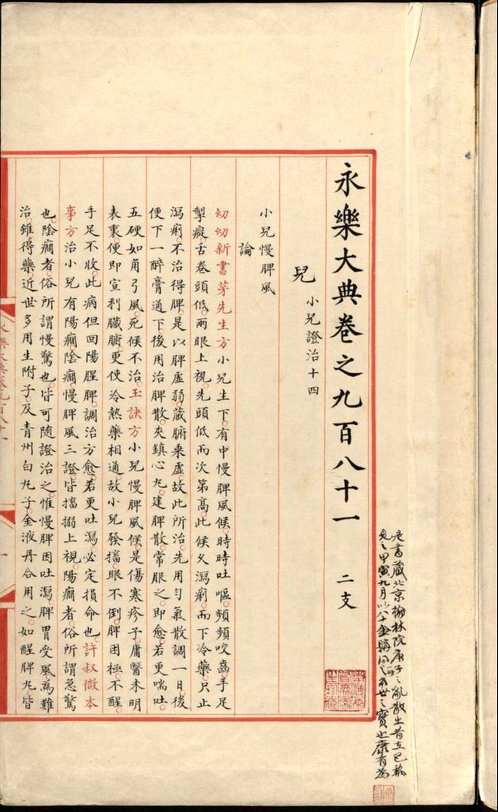 永樂大典卷之九百八十一 二支
兒 小兒證治十四
小兒慢脾風
論
幼幼新書茅先生方小兒生下有中慢脾風候時時吐嘔頻頻咬齒手足
掣瘲舌卷頭低兩眼上視先頭低而次第高此候久瀉痢而下冷藥只止
瀉痢不治得脾是以脾虛弱藏腑乘虛故此所治先用勻氣散調一日後
便下一醉膏通下後用治脾散夾鎮心丸建脾散常服之即愈若更喘吐
五硬如角弓風死候不治玉訣方小兒慢脾風候是傷寒疹子庸醫未明
表裏便即宣利臟腑更使冷熱藥相通故小兒發搐眼不倒脾困極不醒
手足不收此病但回陽醒脾調治方愈若更吐瀉必定損命也許叔微本
事方治小兒有陽癇陰癇慢脾風三證皆搐搦上視陽癇者俗所謂急驚
也陰癇者俗所謂慢驚也皆可隨證治之惟慢脾因吐瀉脾胃受風為難
治錐得藥近世多用生附子及青州白丸子金液丹合用之如醒脾丸皆
是書藏北京翰林院庚子之亂散出昔在巴黎
見之甲寅九月以金購
世之寶也康有為